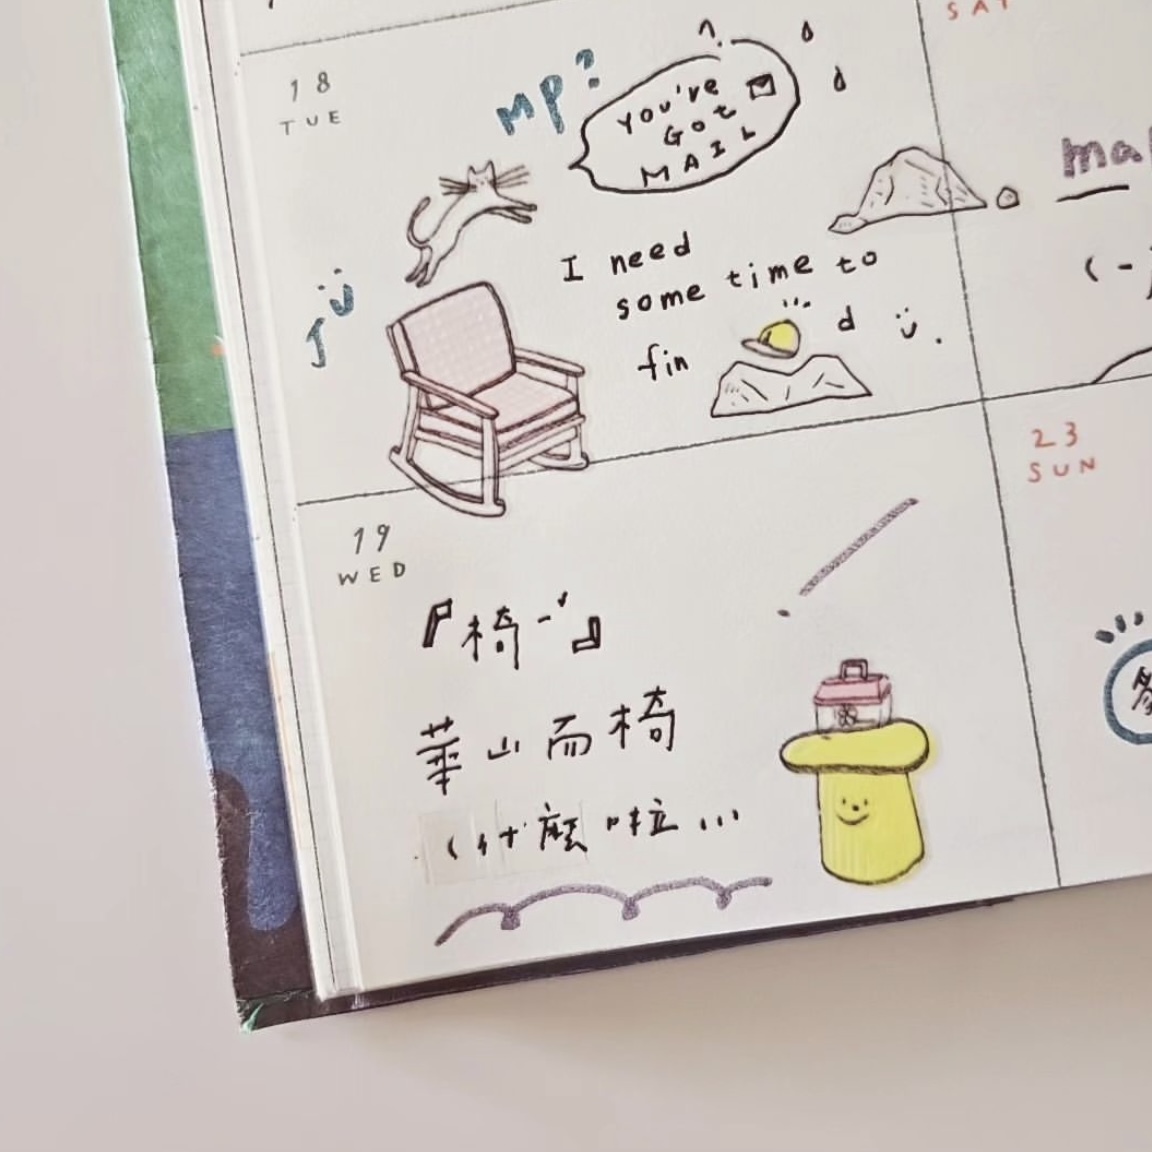 18
TUE
MP?
You've
GOT
MAIL
I need
some time to
fin d
19
WED
『椅-』
華山而椅
(什麼啦...
SAT
mal
23
SUN